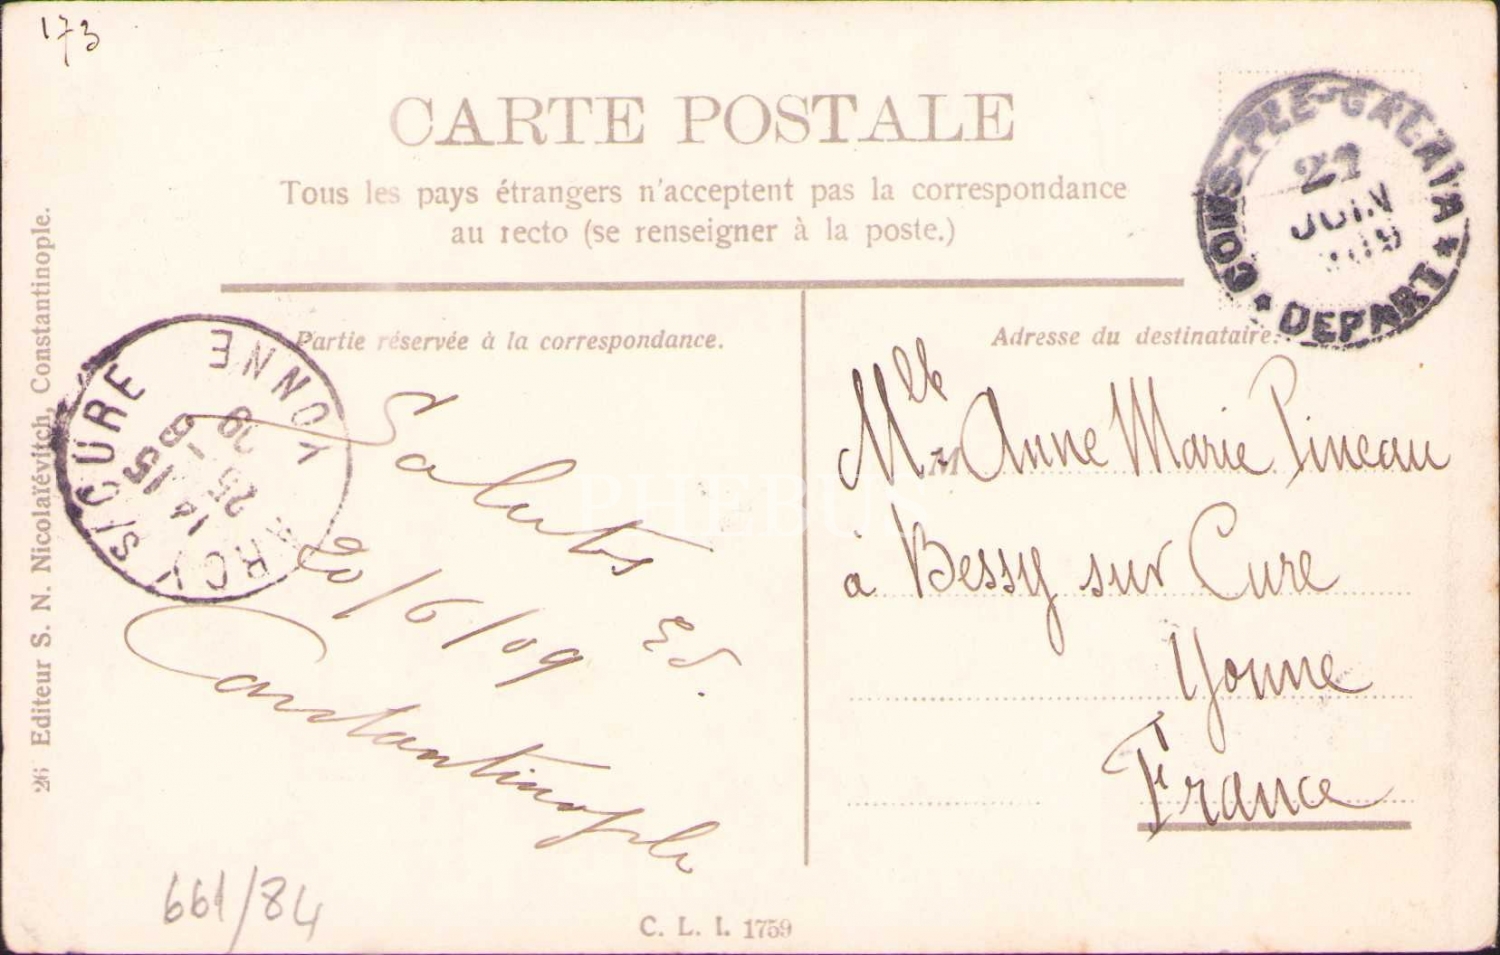 173
CARTE POSTALE
Tous les pays étrangers n'acceptent pas la correspondance
au recto (se renseigner à la poste.)
CONS-PLE-GALATA
21
JUIN
909
* DEPART *
26 Editeur S. N. Nicolaïévitch, Constantinople.
Partie réservée à la correspondance.
ARCY S/ CURE
YONNE
14 15
25 - 6
09
Saluts
20/6/09
Ed.
Constantinople
Adresse du destinataire.
Mlle Anne Marie Pineau
à Bessy sur Cure
Yonne
France
PHEBUS
661/84
C. L. I. 1759